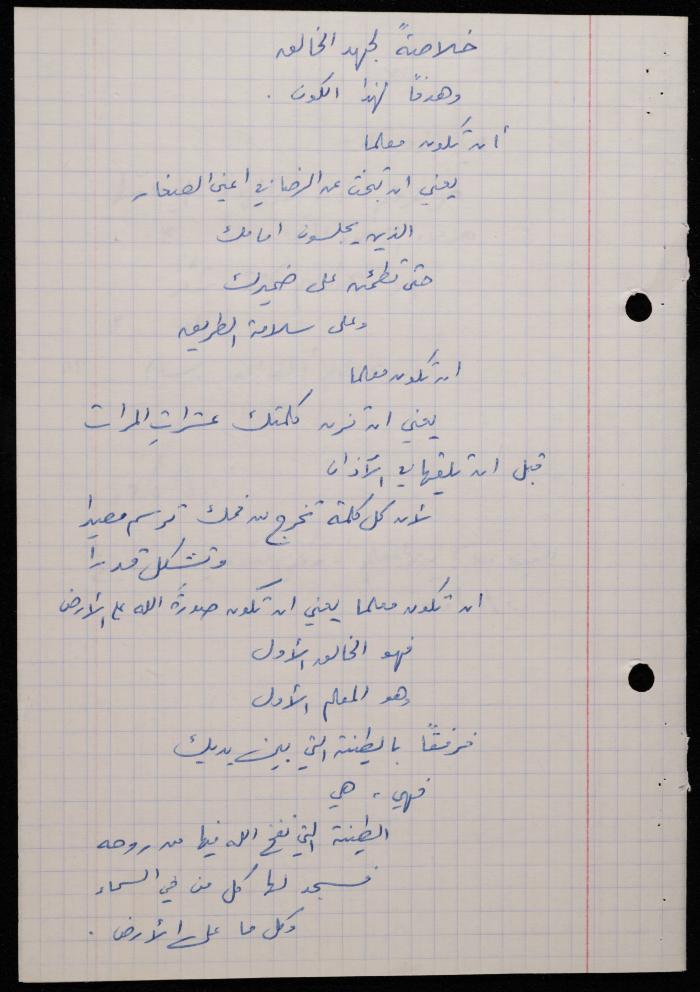 خلاصةً لجهد الخالق
وهدفًا لهذا الكون .
أن تكون معلما
يعني ان تبحث عن الرضا في اعين الصغار
الذين يجلسون امامك
حتى تطمئن على ضميرك
وعلى سلامة الطريق
ان تكون معلما
يعني ان تزن كلمتك عشراتِ المرات
قبل ان تلقيها في الآذان
لأن كل كلمة تخرج من فمك ترسم مصيرا
وتشكل قدرا
ان تكون معلما يعني ان تكون صورةَ الله على الأرض
فهو الخالق الأول
وهو المعلم الأول
فرفقًا بالطينة التي بين يديك
فهي ، هي
الطينة التي نفخ الله فيها من روحه
فسجد لها كل من في السماء
وكل ما على الأرض .